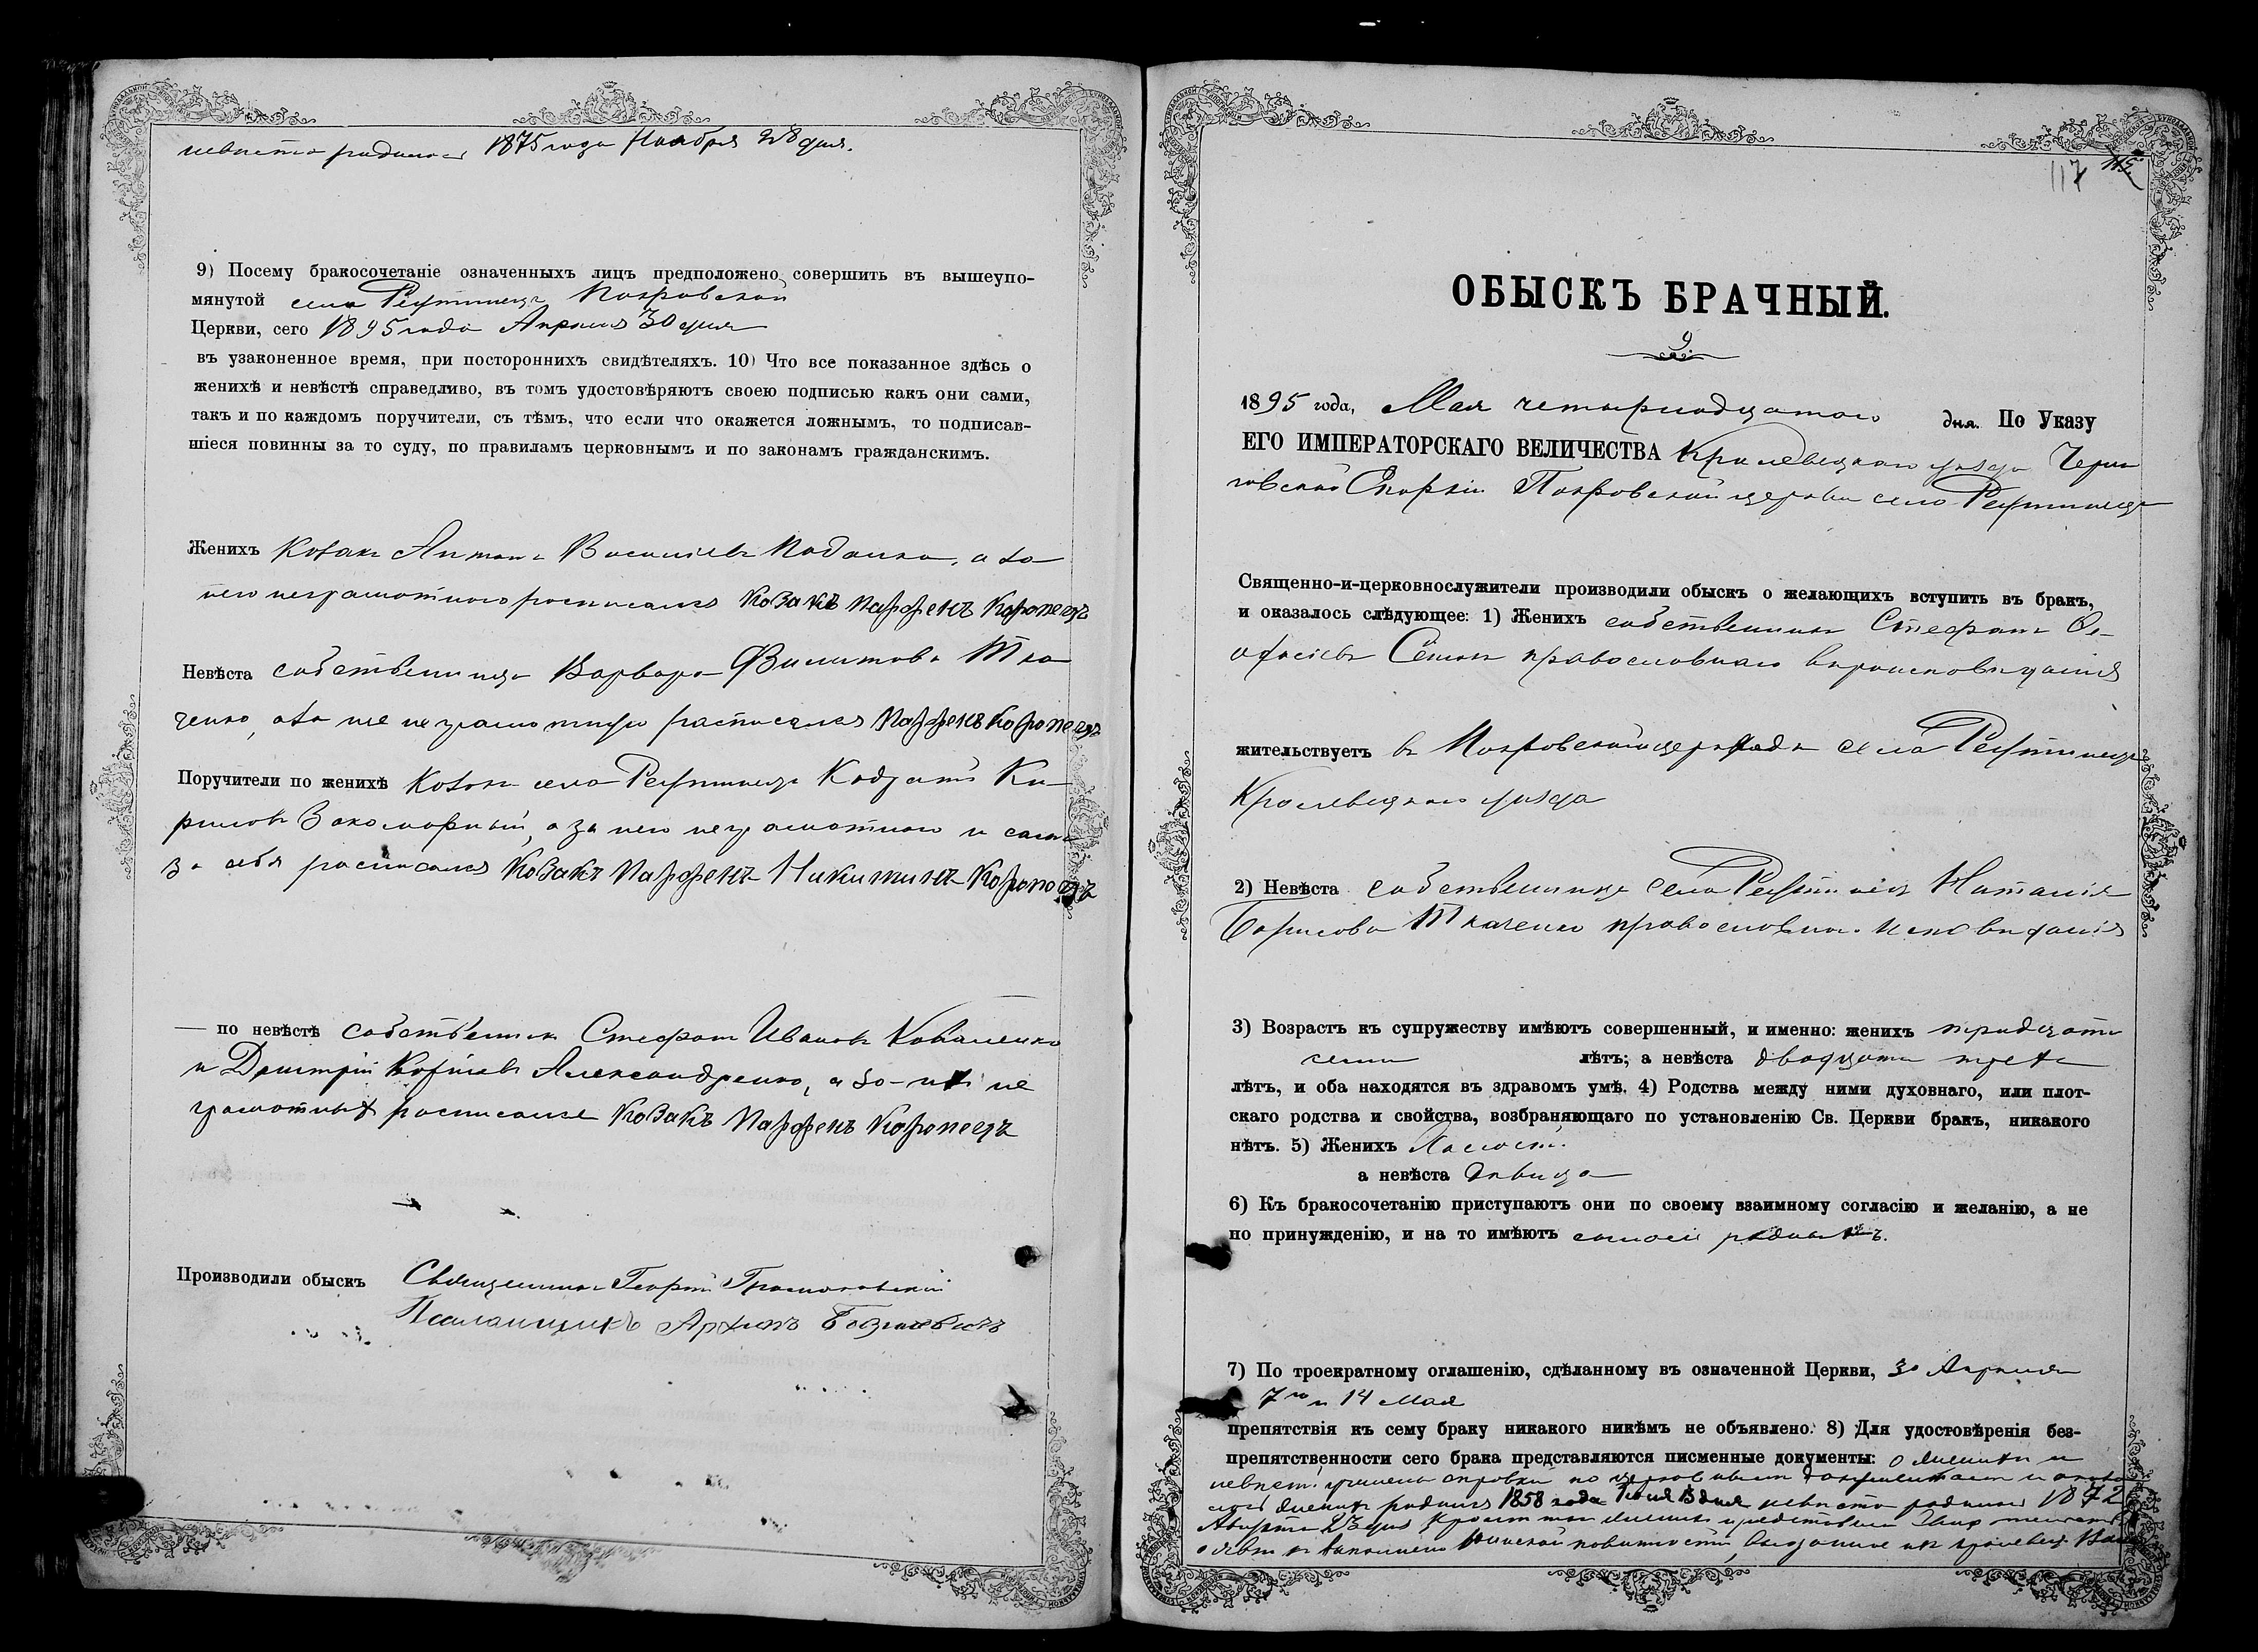 невѣста родилась 1875 года Ноября 28 дня.
9) Посему бракосочетаніе означенныхъ лицъ предположено совершить въ вышеупо-
мянутой села Реутинецъ Покровской
Церкви, сего 1895 года Апрѣля 30 дня
въ узаконенное время, при постороннихъ свидѣтеляхъ. 10) Что все показанное здѣсь о
женихѣ и невѣстѣ справедливо, въ томъ удостовѣряютъ своею подписью какъ они сами,
такъ и по каждомъ поручители, съ тѣмъ, что если что окажется ложнымъ, то подписав-
шіеся повинны за то суду, по правиламъ церковнымъ и по законамъ гражданскимъ.
Женихъ Козакъ Антонъ Васильевъ а за
него неграмотнаго росписался Козакъ Парфенъ Коропецъ
Невѣста собственница Варвара Филипова Тка-
ченко, а за нее неграмотную расписался Парфенъ Коропецъ
Поручители по женихѣ Козакъ села Реутинецъ Кодратъ Ки-
риловъ Закоморный, а за него неграмотнаго и самъ
за себя росписался Козакъ Парфенъ Никитинъ Коропецъ
— по невѣстѣ собственники Стефанъ Ивановъ Коваленко
и Дмитрій Александренко, а за нихъ не
грамотныхъ росписался Козакъ Парфенъ Коропецъ
Производили обыскъ Священникъ Георгій
Псаломщикъ Архипъ
117 115
ОБЫСКЪ БРАЧНЫЙ.
9
1895 года, Мая четырнадцатаго дня. По Указу
ЕГО ИМПЕРАТОРСКАГО ВЕЛИЧЕСТВА Кролевецкаго уѣзда Черни
говской Епархіи Покровской церкви села Реутинецъ
Священно-и-церковнослужители производили обыскъ о желающихъ вступить въ бракъ,
и оказалось слѣдующее: 1) Женихъ собственникъ Стефанъ
православнаго вѣроисповѣданія
жительствуетъ въ Покровской села Реутинецъ
Кролевецкаго уѣзда
2) Невѣста собственница села Реутинецъ Наталія
Борисова Ткаченко православнаго исповѣданія
3) Возрастъ къ супружеству имѣютъ совершенный, и именно: женихъ тридцати
семи лѣтъ; а невѣста двадцати трехъ
лѣтъ, и оба находятся въ здравомъ умѣ. 4) Родства между ними духовнаго, или плот-
скаго родства и свойства, возбраняющаго по установленію Св. Церкви бракъ, никакого
нѣтъ. 5) Женихъ Холостъ
а невѣста Дѣвица
6) Къ бракосочетанію приступаютъ они по своему взаимному согласію и желанію, а не
по принужденію, и на то имѣютъ
7) По троекратному оглашенію, сдѣланному въ означенной Церкви, 30 Апрѣля
7го и 14 Мая
препятствія къ сему браку никакого никѣмъ не объявлено. 8) Для удостовѣренія без-
препятственности сего брака представляются писменные документы: о женихѣ и
невѣстѣ справки по документамъ и
женихъ родился 1858 года Іюля дня невѣста родилась 1872
Августа 23 дня
воинской повинности,